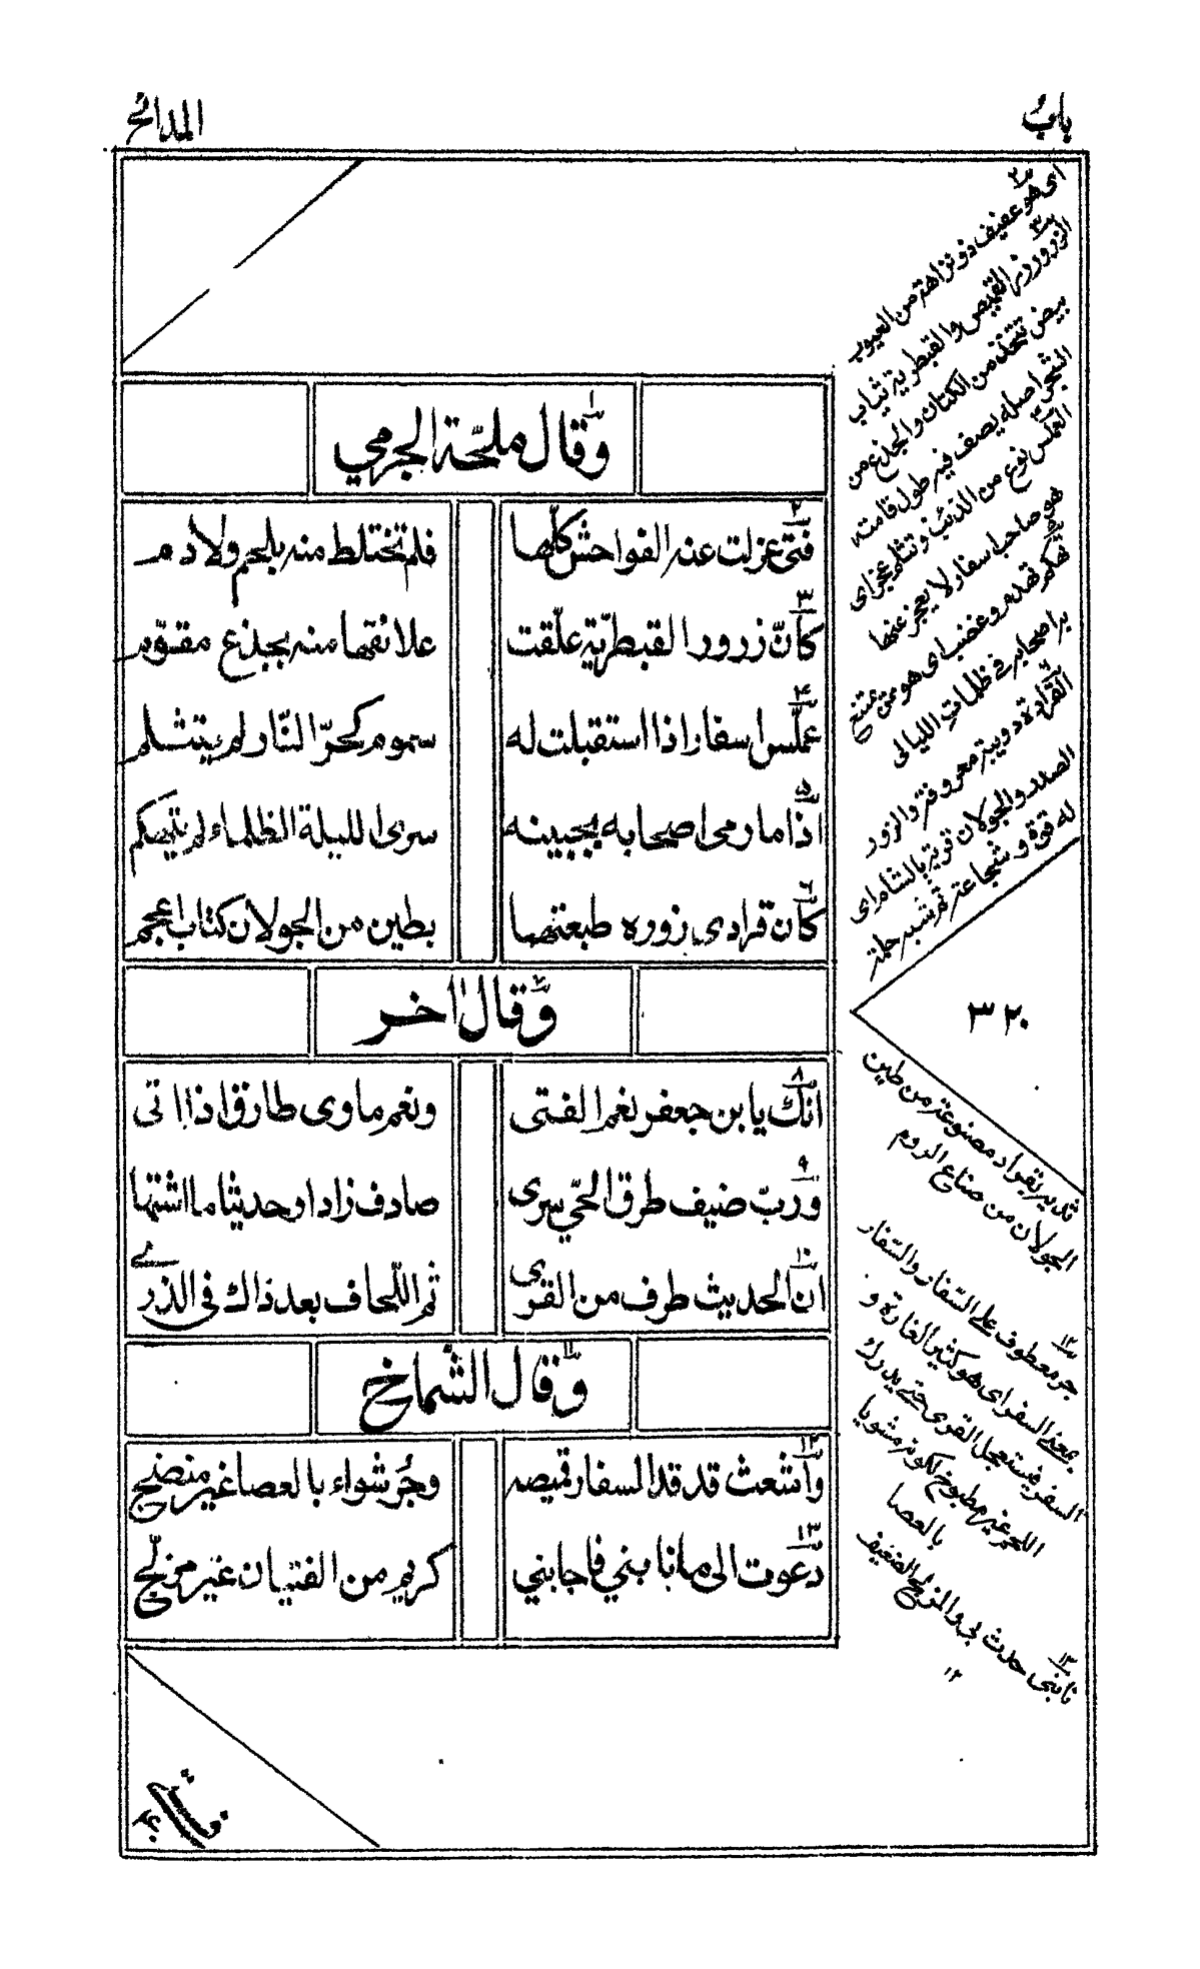 باب
المدائح
وقال ملحّة الجرمي
فتى عزلت عنه الفواحش كلّها فلم تختلط منه بلحم ولا دم
كانّ زرور القبطريّة علّقت علائقها منه بجذع مقوّم
عملّس اسفار اذا استقبلت له سموم كحرّ النّار لم يتثلم
اذا ما رمى اصحابه بجبينه سرى الليلة الظلماء لم يتهكم
كان قرادى زوره طبعتهما بطين من الجولان كتاب اعجم
وقال اخر
انك يا بن جعفر نعم الفتى ونعم ماوى طارق اذا اتى
ورب ضيف طرق الحيّ سرى صادف زادا وحديثا ما اشتهى
ان الحديث طرف من القرى ثم اللّحاف بعد ذاك فى الذرى
وقال الشماخ
واشعث قد قد السفار قميصه وجُر شواء بالعصا غير منضج
دعوت الى ما نابني فاجابني كريم من الفتيان غير مزلّج
اى هو عفيف ذو نزاهة من العيوب
الزرور زر القميص والقبطرية ثياب
بيض تتخذ من الكتان والجذع من
الشجر اصله يصف فيه طول قامته
العملّس نوع من الذئب وتثلم عجز اى
هو صاحب اسفار لا يعجز عنها
تهكم تهدم وغضب اى هو متى يمتنع
براصحابه فى ظلمات الليالى
القرادة دويبة معروفة والزور
الصدر والجولان قرية بالشام اى
له قوة و شجاعة ثم شبه حلمة
٣٢٠
ثدييه بقراد مصنوعة من طين
الجولان من صناع الروم
جر معطوف على السفار والسفار
بمعنى السفر اى هو كثير الغارة و
السفر فيستعجل القرى حتى يدرك
اللحم غير مطبوخ لكونه مشويا
بالعصا
نابنى حدث بى والمزلج الضعيف
١٢